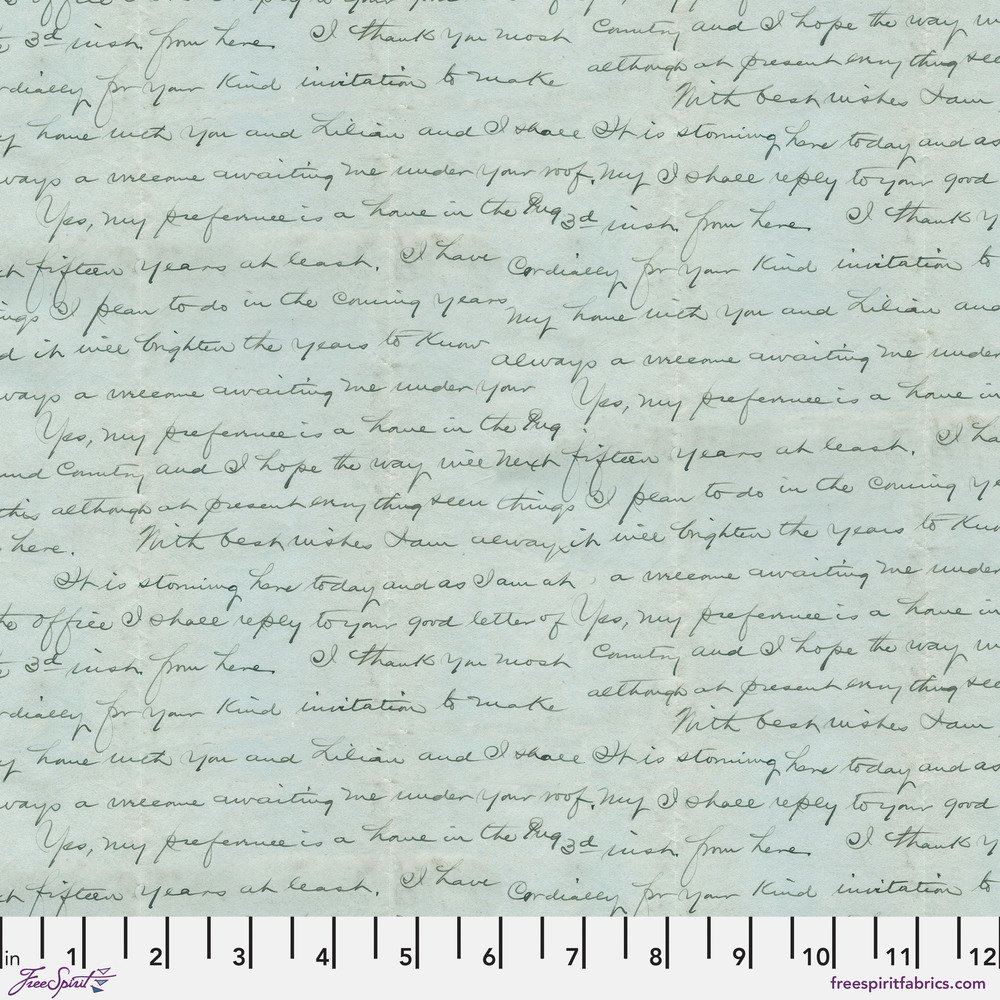 3d inst. from here. I thank you most
rdially for your kind invitation to make
y home with you and Lilian and I shall
ways a welcome awaiting me under your roof.
Yes, my preference is a home in the Pug
xt fifteen years at least. I have
ings I plan to do in the coming years
d it will brighten the years to know
ways a welcome awaiting me under your
Yes, my preference is a home in the Pug
und Country and I hope the way will
this although at present everything seem
here. With best wishes I am always
It is storming here today and as I am at
the office I shall reply to your good letter of
3d inst. from here. I thank you most
rdially for your kind invitation to make
y home with you and Lilian and I shall
ways a welcome awaiting me under your roof.
Yes, my preference is a home in the Pug
xt fifteen years at least. I have
Country and I hope the way w
although at present everything see
With best wishes I am
It is storming here today and as
my I shall reply to your good
3d inst. from here. I thank y
Cordially for your kind invitation to
my home with you and Lilian and
always a welcome awaiting me under
Yes, my preference is a home in
Next fifteen years at least. I ha
things I plan to do in the coming ye
it will brighten the years to kno
a welcome awaiting me under
Yes, my preference is a home in
Country and I hope the way w
although at present everything see
With best wishes I am
It is storming here today and as
my I shall reply to your good
3d inst. from here. I thank y
Cordially for your kind invitation to
in 1 2 3 4 5 6 7 8 9 10 11 12
FreeSpirit
freespiritfabrics.com